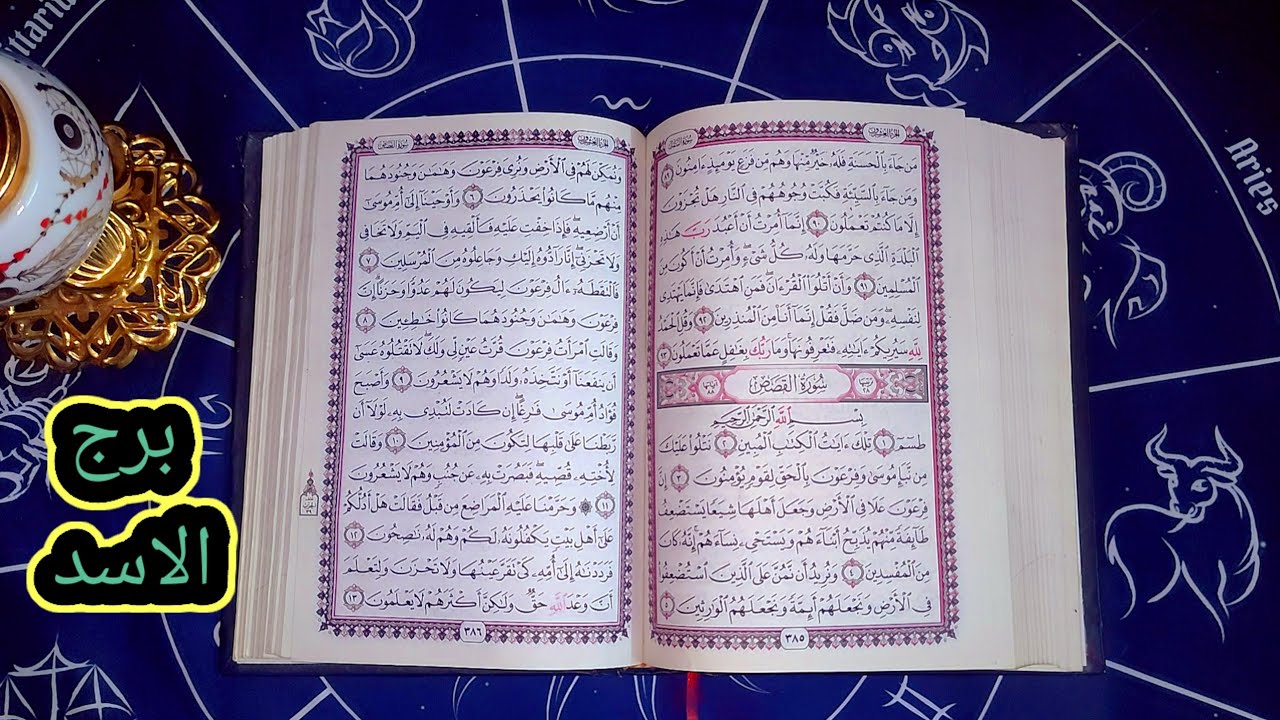 الجزء العشرون
سورة النمل
مَن جَآءَ بِٱلْحَسَنَةِ فَلَهُۥ خَيْرٌ مِّنْهَا وَهُم مِّن فَزَعٍ يَوْمَئِذٍ ءَامِنُونَ ٨٩
وَمَن جَآءَ بِٱلسَّيِّئَةِ فَكُبَّتْ وُجُوهُهُمْ فِى ٱلنَّارِ هَلْ تُجْزَوْنَ
إِلَّا مَا كُنتُمْ تَعْمَلُونَ ٩٠ إِنَّمَآ أُمِرْتُ أَنْ أَعْبُدَ رَبَّ هَـٰذِهِ
ٱلْبَلْدَةِ ٱلَّذِى حَرَّمَهَا وَلَهُۥ كُلُّ شَىْءٍ ۖ وَأُمِرْتُ أَنْ أَكُونَ مِنَ
ٱلْمُسْلِمِينَ ٩١ وَأَنْ أَتْلُوَا۟ ٱلْقُرْءَانَ ۖ فَمَنِ ٱهْتَدَىٰ فَإِنَّمَا يَهْتَدِى
لِنَفْسِهِۦ ۖ وَمَن ضَلَّ فَقُلْ إِنَّمَآ أَنَا۠ مِنَ ٱلْمُنذِرِينَ ٩٢ وَقُلِ ٱلْحَمْدُ
لِلَّهِ سَيُرِيكُمْ ءَايَـٰتِهِۦ فَتَعْرِفُونَهَا ۚ وَمَا رَبُّكَ بِغَـٰفِلٍ عَمَّا تَعْمَلُونَ ٩٣
سُورَةُ القَصَصِ
بِسْمِ ٱللَّهِ ٱلرَّحْمَـٰنِ ٱلرَّحِيمِ
طسٓمٓ ١ تِلْكَ ءَايَـٰتُ ٱلْكِتَـٰبِ ٱلْمُبِينِ ٢ نَتْلُوا۟ عَلَيْكَ
مِن نَّبَإِ مُوسَىٰ وَفِرْعَوْنَ بِٱلْحَقِّ لِقَوْمٍ يُؤْمِنُونَ ٣ إِنَّ
فِرْعَوْنَ عَلَا فِى ٱلْأَرْضِ وَجَعَلَ أَهْلَهَا شِيَعًا يَسْتَضْعِفُ
طَآئِفَةً مِّنْهُمْ يُذَبِّحُ أَبْنَآءَهُمْ وَيَسْتَحْىِۦ نِسَآءَهُمْ ۚ إِنَّهُۥ كَانَ
مِنَ ٱلْمُفْسِدِينَ ٤ وَنُرِيدُ أَن نَّمُنَّ عَلَى ٱلَّذِينَ ٱسْتُضْعِفُوا۟
فِى ٱلْأَرْضِ وَنَجْعَلَهُمْ أَئِمَّةً وَنَجْعَلَهُمُ ٱلْوَٰرِثِينَ ٥
٣٨٥
الجزء العشرون
سورة القصص
وَنُمَكِّنَ لَهُمْ فِى ٱلْأَرْضِ وَنُرِىَ فِرْعَوْنَ وَهَـٰمَـٰنَ وَجُنُودَهُمَا
مِنْهُم مَّا كَانُوا۟ يَحْذَرُونَ ٦ وَأَوْحَيْنَآ إِلَىٰٓ أُمِّ مُوسَىٰٓ
أَنْ أَرْضِعِيهِ ۖ فَإِذَا خِفْتِ عَلَيْهِ فَأَلْقِيهِ فِى ٱلْيَمِّ وَلَا تَخَافِى
وَلَا تَحْزَنِىٓ ۖ إِنَّا رَآدُّوهُ إِلَيْكِ وَجَاعِلُوهُ مِنَ ٱلْمُرْسَلِينَ ٧
فَٱلْتَقَطَهُۥٓ ءَالُ فِرْعَوْنَ لِيَكُونَ لَهُمْ عَدُوًّا وَحَزَنًا ۗ إِنَّ
فِرْعَوْنَ وَهَـٰمَـٰنَ وَجُنُودَهُمَا كَانُوا۟ خَـٰطِـِٔينَ ٨
وَقَالَتِ ٱمْرَأَتُ فِرْعَوْنَ قُرَّتُ عَيْنٍ لِّى وَلَكَ ۖ لَا تَقْتُلُوهُ عَسَىٰٓ
أَن يَنفَعَنَآ أَوْ نَتَّخِذَهُۥ وَلَدًا وَهُمْ لَا يَشْعُرُونَ ٩ وَأَصْبَحَ
فُؤَادُ أُمِّ مُوسَىٰ فَـٰرِغًا ۖ إِن كَادَتْ لَتُبْدِى بِهِۦ لَوْلَآ أَن
رَّبَطْنَا عَلَىٰ قَلْبِهَا لِتَكُونَ مِنَ ٱلْمُؤْمِنِينَ ١٠ وَقَالَتْ
لِأُخْتِهِۦ قُصِّيهِ ۖ فَبَصُرَتْ بِهِۦ عَن جُنُبٍ وَهُمْ لَا يَشْعُرُونَ
١١ ۞ وَحَرَّمْنَا عَلَيْهِ ٱلْمَرَاضِعَ مِن قَبْلُ فَقَالَتْ هَلْ أَدُلُّكُمْ
عَلَىٰٓ أَهْلِ بَيْتٍ يَكْفُلُونَهُۥ لَكُمْ وَهُمْ لَهُۥ نَـٰصِحُونَ ١٢
فَرَدَدْنَـٰهُ إِلَىٰٓ أُمِّهِۦ كَىْ تَقَرَّ عَيْنُهَا وَلَا تَحْزَنَ وَلِتَعْلَمَ
أَنَّ وَعْدَ ٱللَّهِ حَقٌّ وَلَـٰكِنَّ أَكْثَرَهُمْ لَا يَعْلَمُونَ ١٣
٣٨٦
برج
الاسد
Aries